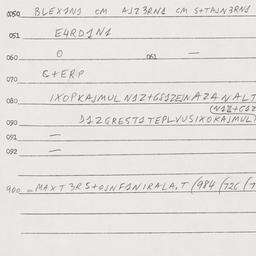 0050 BLEX1N1 CM A1Z3RN1 CM S+TA1N3RN1
051 E4RD1N1
060 O 061 —
070 C+ERP
080 1XOPKAJMULN1Z+G1ZE1NAZANALT
(N1Z+G1Z
090 D1ZGREST1TEPLVUS1XOKAJMUL)
091 —
092 —
900 =MAXT3RS+O1NF1N1RALA.T(984(726(7